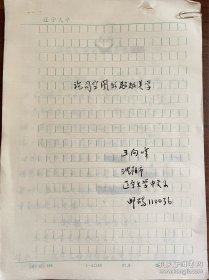 辽宁大学
论司空图的超越美学
王向峰
沈阳市
辽宁大学中文系
邮编110036